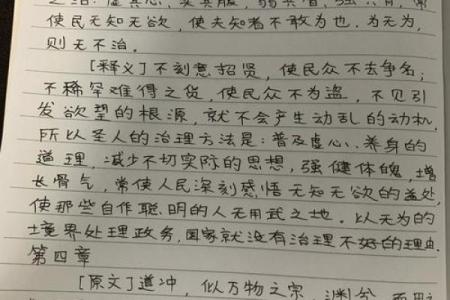 使民无知无欲，使夫知者不敢为也。为无为，
则无不治。
[释义]不刻意招贤，使民众不去争名；
不稀罕难得之货，使民众不为盗，不见引
发欲望的根源，就不会产生动乱的动机。
所以圣人的治理方法是：普及虚心、养身的
道理，减少不切实际的思想，强健体魄，增
长骨气，常使人民深刻感悟无知无欲的益处，
使那些自作聪明的人无用武之地。以无为的
境界处理政务，国家就没有治理不好的理由。
第四章
[原文]道冲，似万物之宗，渊兮